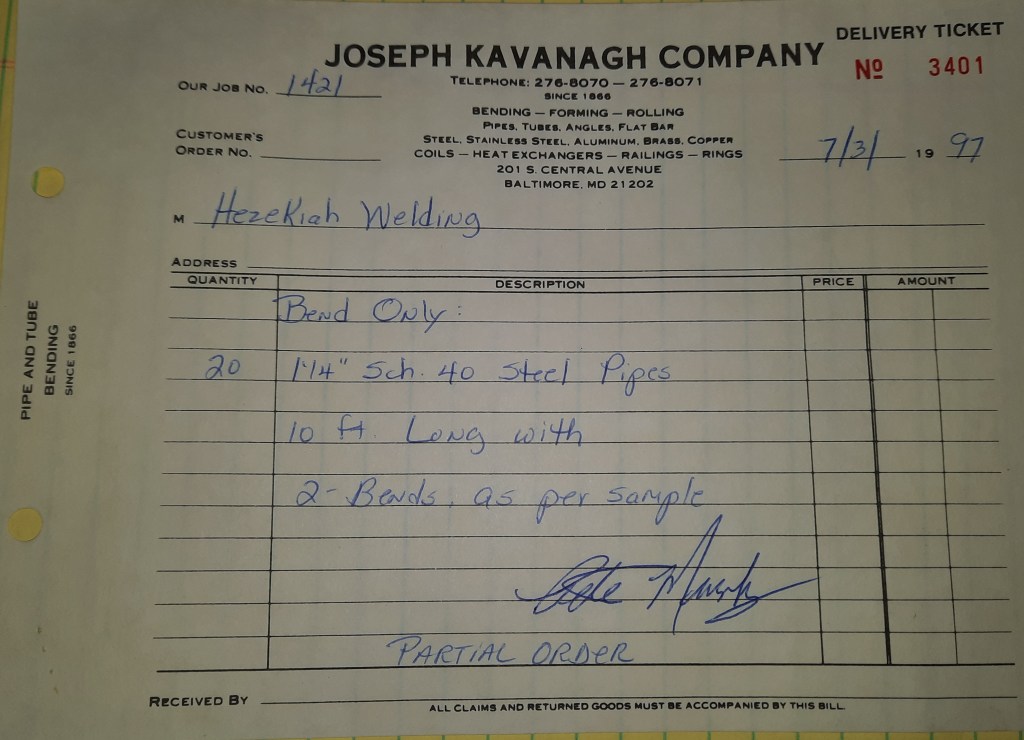 DELIVERY TICKET
JOSEPH KAVANAGH COMPANY
Nº 3401
OUR JOB NO. 1421
TELEPHONE: 276-8070 — 276-8071
SINCE 1866
BENDING — FORMING — ROLLING
PIPES, TUBES, ANGLES, FLAT BAR
CUSTOMER'S
ORDER NO.
STEEL, STAINLESS STEEL, ALUMINUM, BRASS, COPPER
COILS — HEAT EXCHANGERS — RAILINGS — RINGS
7/3/ 19 97
201 S. CENTRAL AVENUE
BALTIMORE, MD 21202
M Hezekiah Welding
ADDRESS
QUANTITY DESCRIPTION PRICE AMOUNT
Bend Only:
20 1 1/4" Sch. 40 Steel Pipes
10 ft. Long with
2- Bends, as per sample
PARTIAL ORDER
RECEIVED BY
ALL CLAIMS AND RETURNED GOODS MUST BE ACCOMPANIED BY THIS BILL
PIPE AND TUBE
BENDING
SINCE 1866